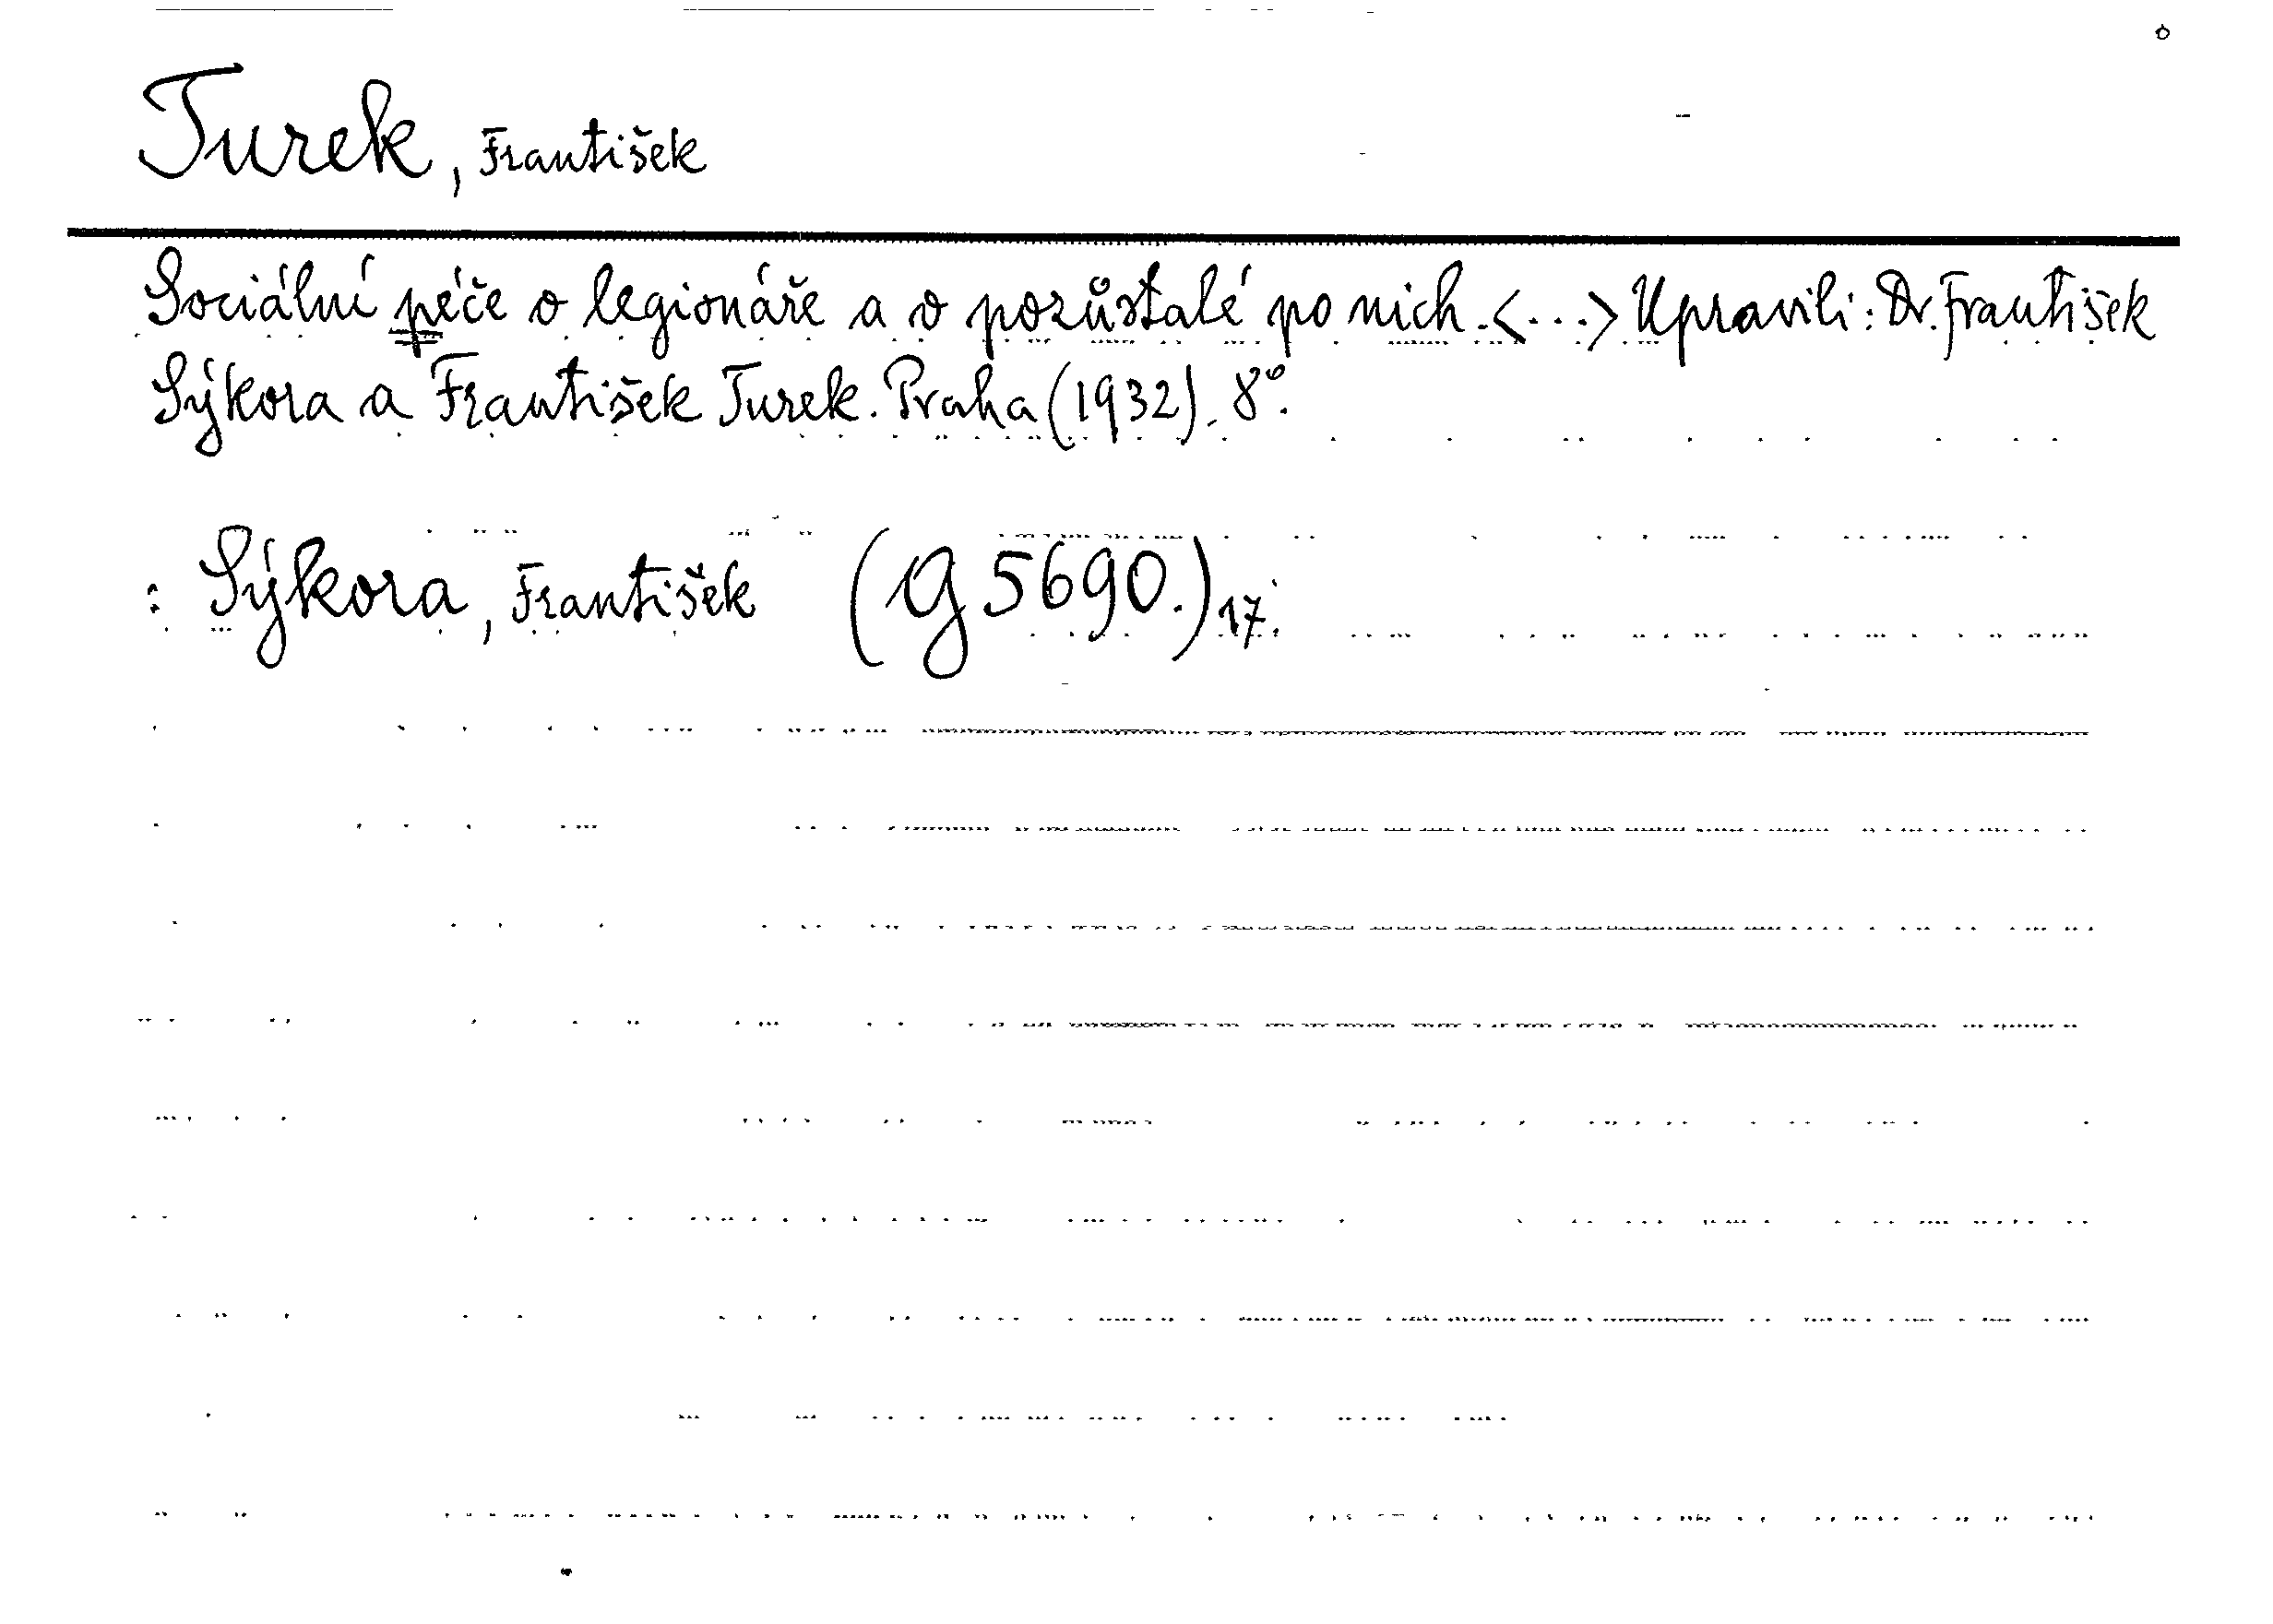 Turek, František
Sociální péče o legionáře a o pozůstalé po nich. <...> Upravili: Dr. František
Sýkora a František Turek. Praha (1932). 8°.
: Sýkora, František (G 5690.) 17.